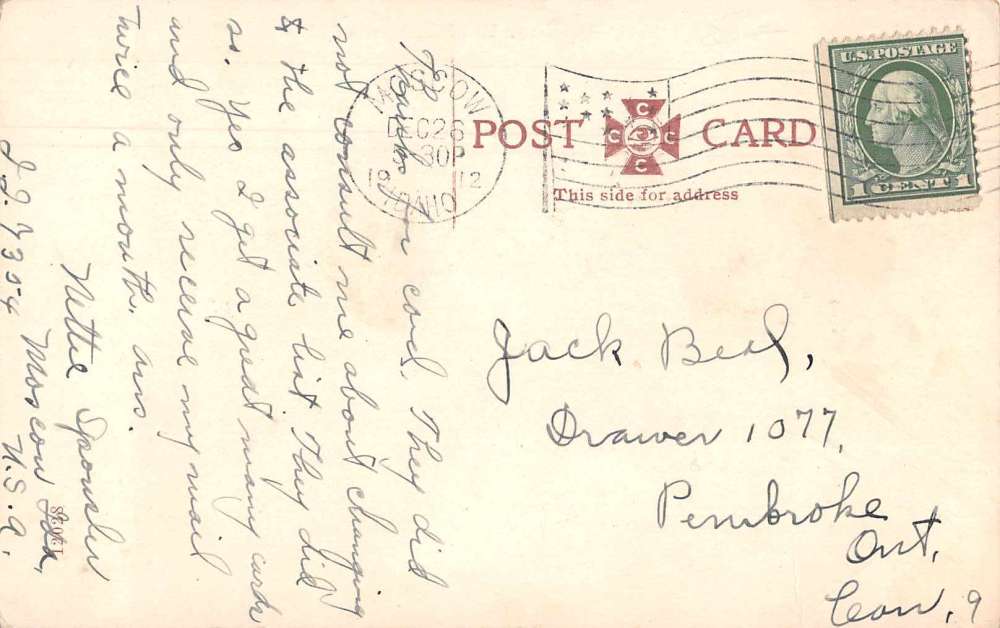 U.S. POSTAGE
1 CENT 1
MOSCOW
DEC 26
30P
1912
IDAHO
POST CARD
C C C C
This side for address
Jack Beal,
Drawer 1077,
Pembroke
Ont,
Can, 9
Thanks for card. They did
not consult me about changing
& the associate list They did
so. Yes I get a great many cards
and only receive my mail
twice a month. ans.
Nettie
Moscow Ida,
U.S.A.